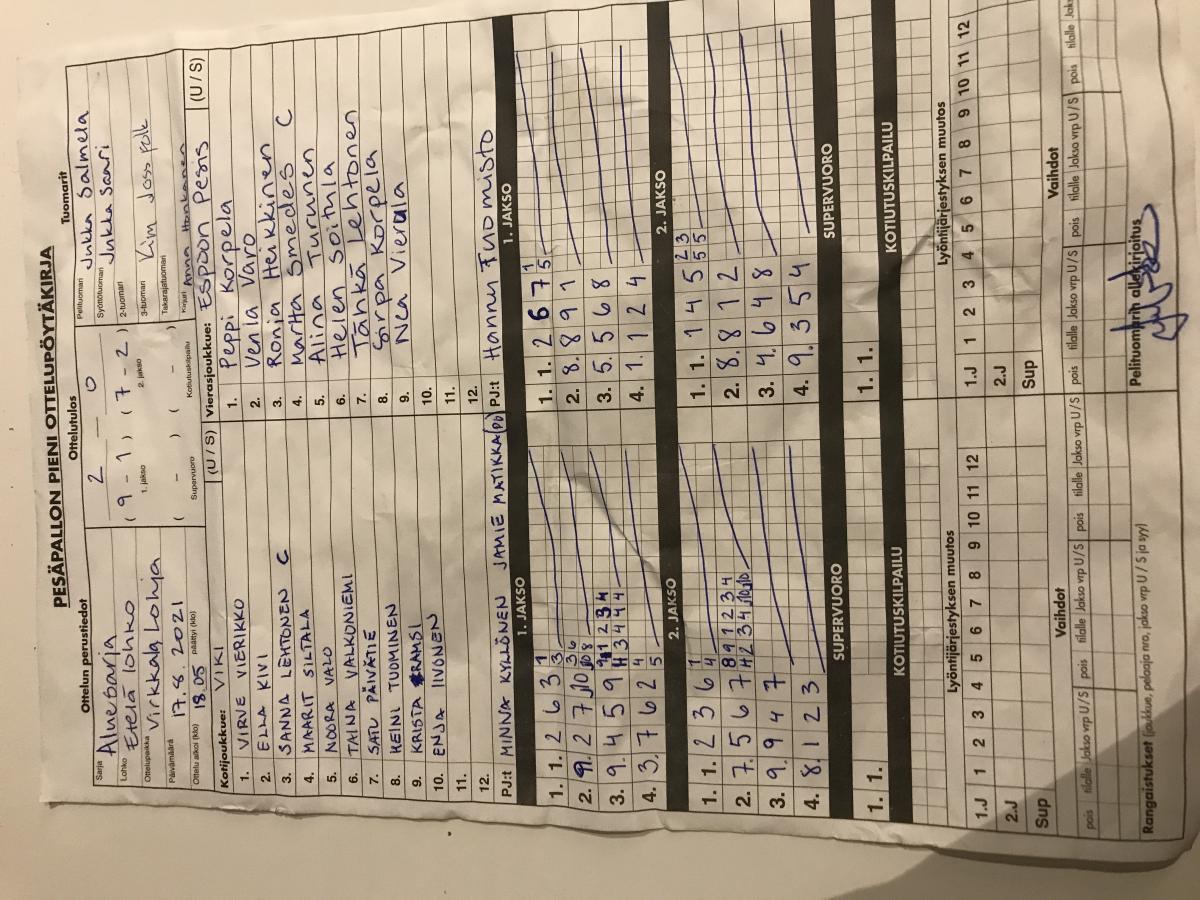 PESÄPALLON PIENI OTTELUPÖYTÄKIRJA
Ottelun perustiedot
Sarja Aluesarja
Lohko Etelä lohko
Ottelupaikka Virkkala Lohja
Päivämäärä 17.8.2021
Ottelu alkoi (klo) 18.05 päättyi (klo)
Ottelutulos
2 — 0
( 9 - 1 ) ( 7 - 2 )
1. jakso 2. jakso
( - ) ( - )
Supervuoro Kotiutuskilpailu
Tuomarit
Pelituomari Jukka Salmela
Syöttötuomari Jukka Saari
2-tuomari
3-tuomari Kim Joss Polk
Takarajatuomari
Kirjuri Anna Honkanen
Kotijoukkue: VIKI (U / S)
1. VIRVE VIERIKKO
2. ELLA KIVI
3. SANNA LEHTONEN C
4. MAARIT SILTALA
5. NOORA VALO
6. TAINA VALKONIEMI
7. SATU PÄIVÄTIE
8. HEINI TUOMINEN
9. KRISTA RAMSI
10. ENJA IIVONEN
11.
12.
PJ:t MINNA KYLLÖNEN JAMIE MATIKKA (PJ)
Vierasjoukkue: Espoon Pesis (U / S)
1. Peppi Korpela
2. Venla Varo
3. Ronja Heikkinen
4. Martta Smedes C
5. Alina Turunen
6. Helen Soitula
7. Tahkä Lehtonen
8. Sirpa Korpela
9. Nea Vierula
10.
11.
12.
PJ:t Hannu Tuomisto
1. JAKSO
1. 1. 2 6 3 1 3
2. 9. 2 7 10
3. 9. 4 5 9
4. 3. 7 6 2 4 5
1. JAKSO
1. 1. 2 6 7 5 1
2. 8. 8 9 1
3. 5. 5 6 8
4. 1. 1 2 4
2. JAKSO
1. 1. 2 3 6 1 4
2. 7. 5 6 7
3. 9. 9 4 7
4. 8. 1 2 3
2. JAKSO
1. 1. 1 4 5 2 3 5 5
2. 8. 8 1 2
3. 4. 6 4 8
4. 9. 3 5 4
SUPERVUORO
1. 1.
SUPERVUORO
1. 1.
KOTIUTUSKILPAILU
KOTIUTUSKILPAILU
Lyöntijärjestyksen muutos
1.J 1 2 3 4 5 6 7 8 9 10 11 12
2.J
Sup
Lyöntijärjestyksen muutos
1.J 1 2 3 4 5 6 7 8 9 10 11 12
2.J
Sup
Vaihdot
pois tilalle Jakso vrp U / S pois tilalle Jakso vrp U / S pois tilalle Jakso vrp U / S
Vaihdot
pois tilalle Jakso vrp U / S pois tilalle Jakso vrp U / S pois tilalle Jak
Rangaistukset (joukkue, pelaaja nro, jakso vrp U / S ja syy)
Pelituomarin allekirjoitus